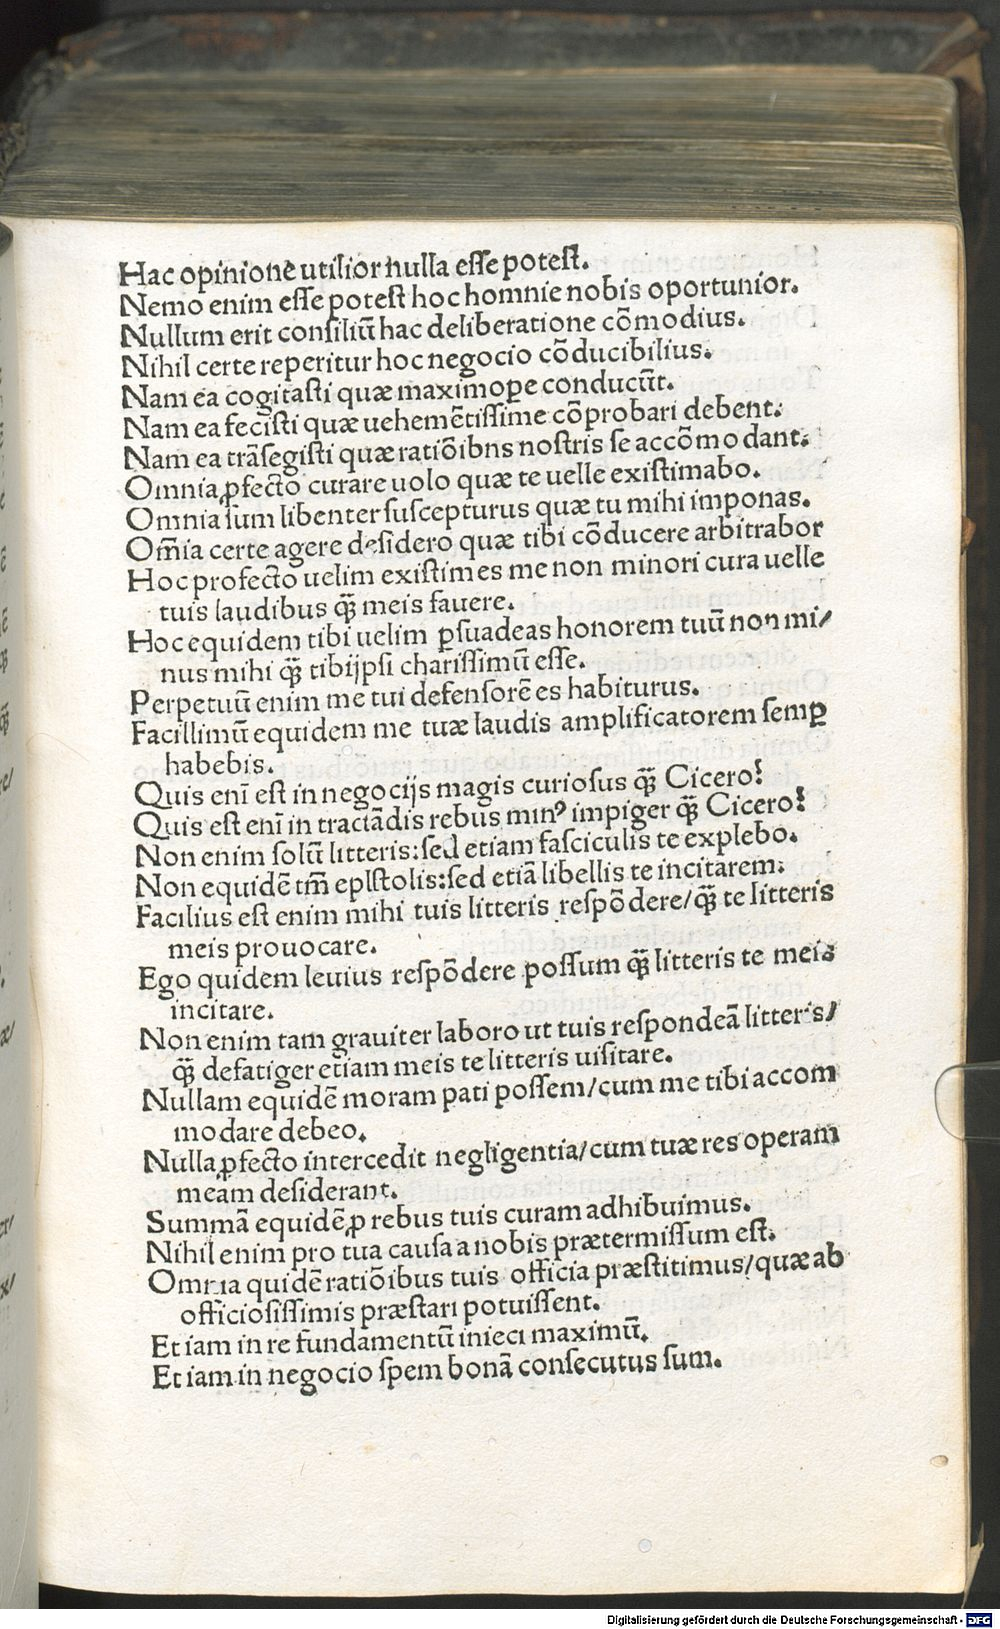 Hac opinione utilior nulla eſſe poteſt.
Nemo enim eſſe poteſt hoc homnie nobis oportunior.
Nullum erit conſiliū hac deliberatione cōmodius.
Nihil certe reperitur hoc negocio cōducibilius.
Nam ea cogitaſti quæ maximoꝑe conducūt.
Nam ea feciſti quæ uehemētiſſime cōprobari debent.
Nam ea trāſegiſti quæ ratiōibns noſtris ſe accōmodant.
Omnia ꝓfecto curare uolo quæ te uelle exiſtimabo.
Omnia ſum libenter ſuſcepturus quæ tu mihi imponas.
Om̄ia certe agere deſidero quæ tibi cōducere arbitrabor
Hoc profecto uelim exiſtimes me non minori cura uelle
tuis laudibus q̄ꝫ meis fauere.
Hoc equidem tibi uelim ꝑſuadeas honorem tuū non mi/
nus mihi q̄ꝫ tibijpſi chariſſimū eſſe.
Perpetuū enim me tui defenſorē es habiturus.
Facillimū equidem me tuæ laudis amplificatorem ſemꝑ
habebis.
Quis eni̅ eſt in negocijs magis curioſus q̄ꝫ Cicero?
Quis eſt eni̅ in tractādis rebus minꝰ impiger q̄ꝫ Cicero?
Non enim ſolū litteris:ſed etiam faſciculis te explebo.
Non equidē tm̄ epIſtolis:ſed etiā libellis te incitarem.
Facilius eſt enim mihi tuis litteris reſpōdere/q̄ꝫ te litteris
meis prouocare.
Ego quidem leuius reſpōdere poſſum q̄ꝫ litteris te meis
incitare.
Non enim tam grauiter laboro ut tuis reſpondeā litteris/
q̄ꝫ defatiger etiam meis te litteris uiſitare.
Nullam equidē moram pati poſſem/cum me tibi accom
modare debeo.
Nulla ꝓfecto intercedit negligentia/cum tuæ res operam
meam deſiderant.
Summā equidē ꝓ rebus tuis curam adhibuimus.
Nihil enim pro tua cauſa a nobis prætermiſſum eſt.
Omnia quidē ratiōibus tuis officia præſtitimus/quæ ab
officioſiſſimis præſtari potuiſſent.
Etiam in re fundamentū inieci maximū.
Etiam in negocio ſpem bonā conſecutus ſum.
Digitalisierung gefördert durch die Deutsche Forschungsgemeinschaft - DFG